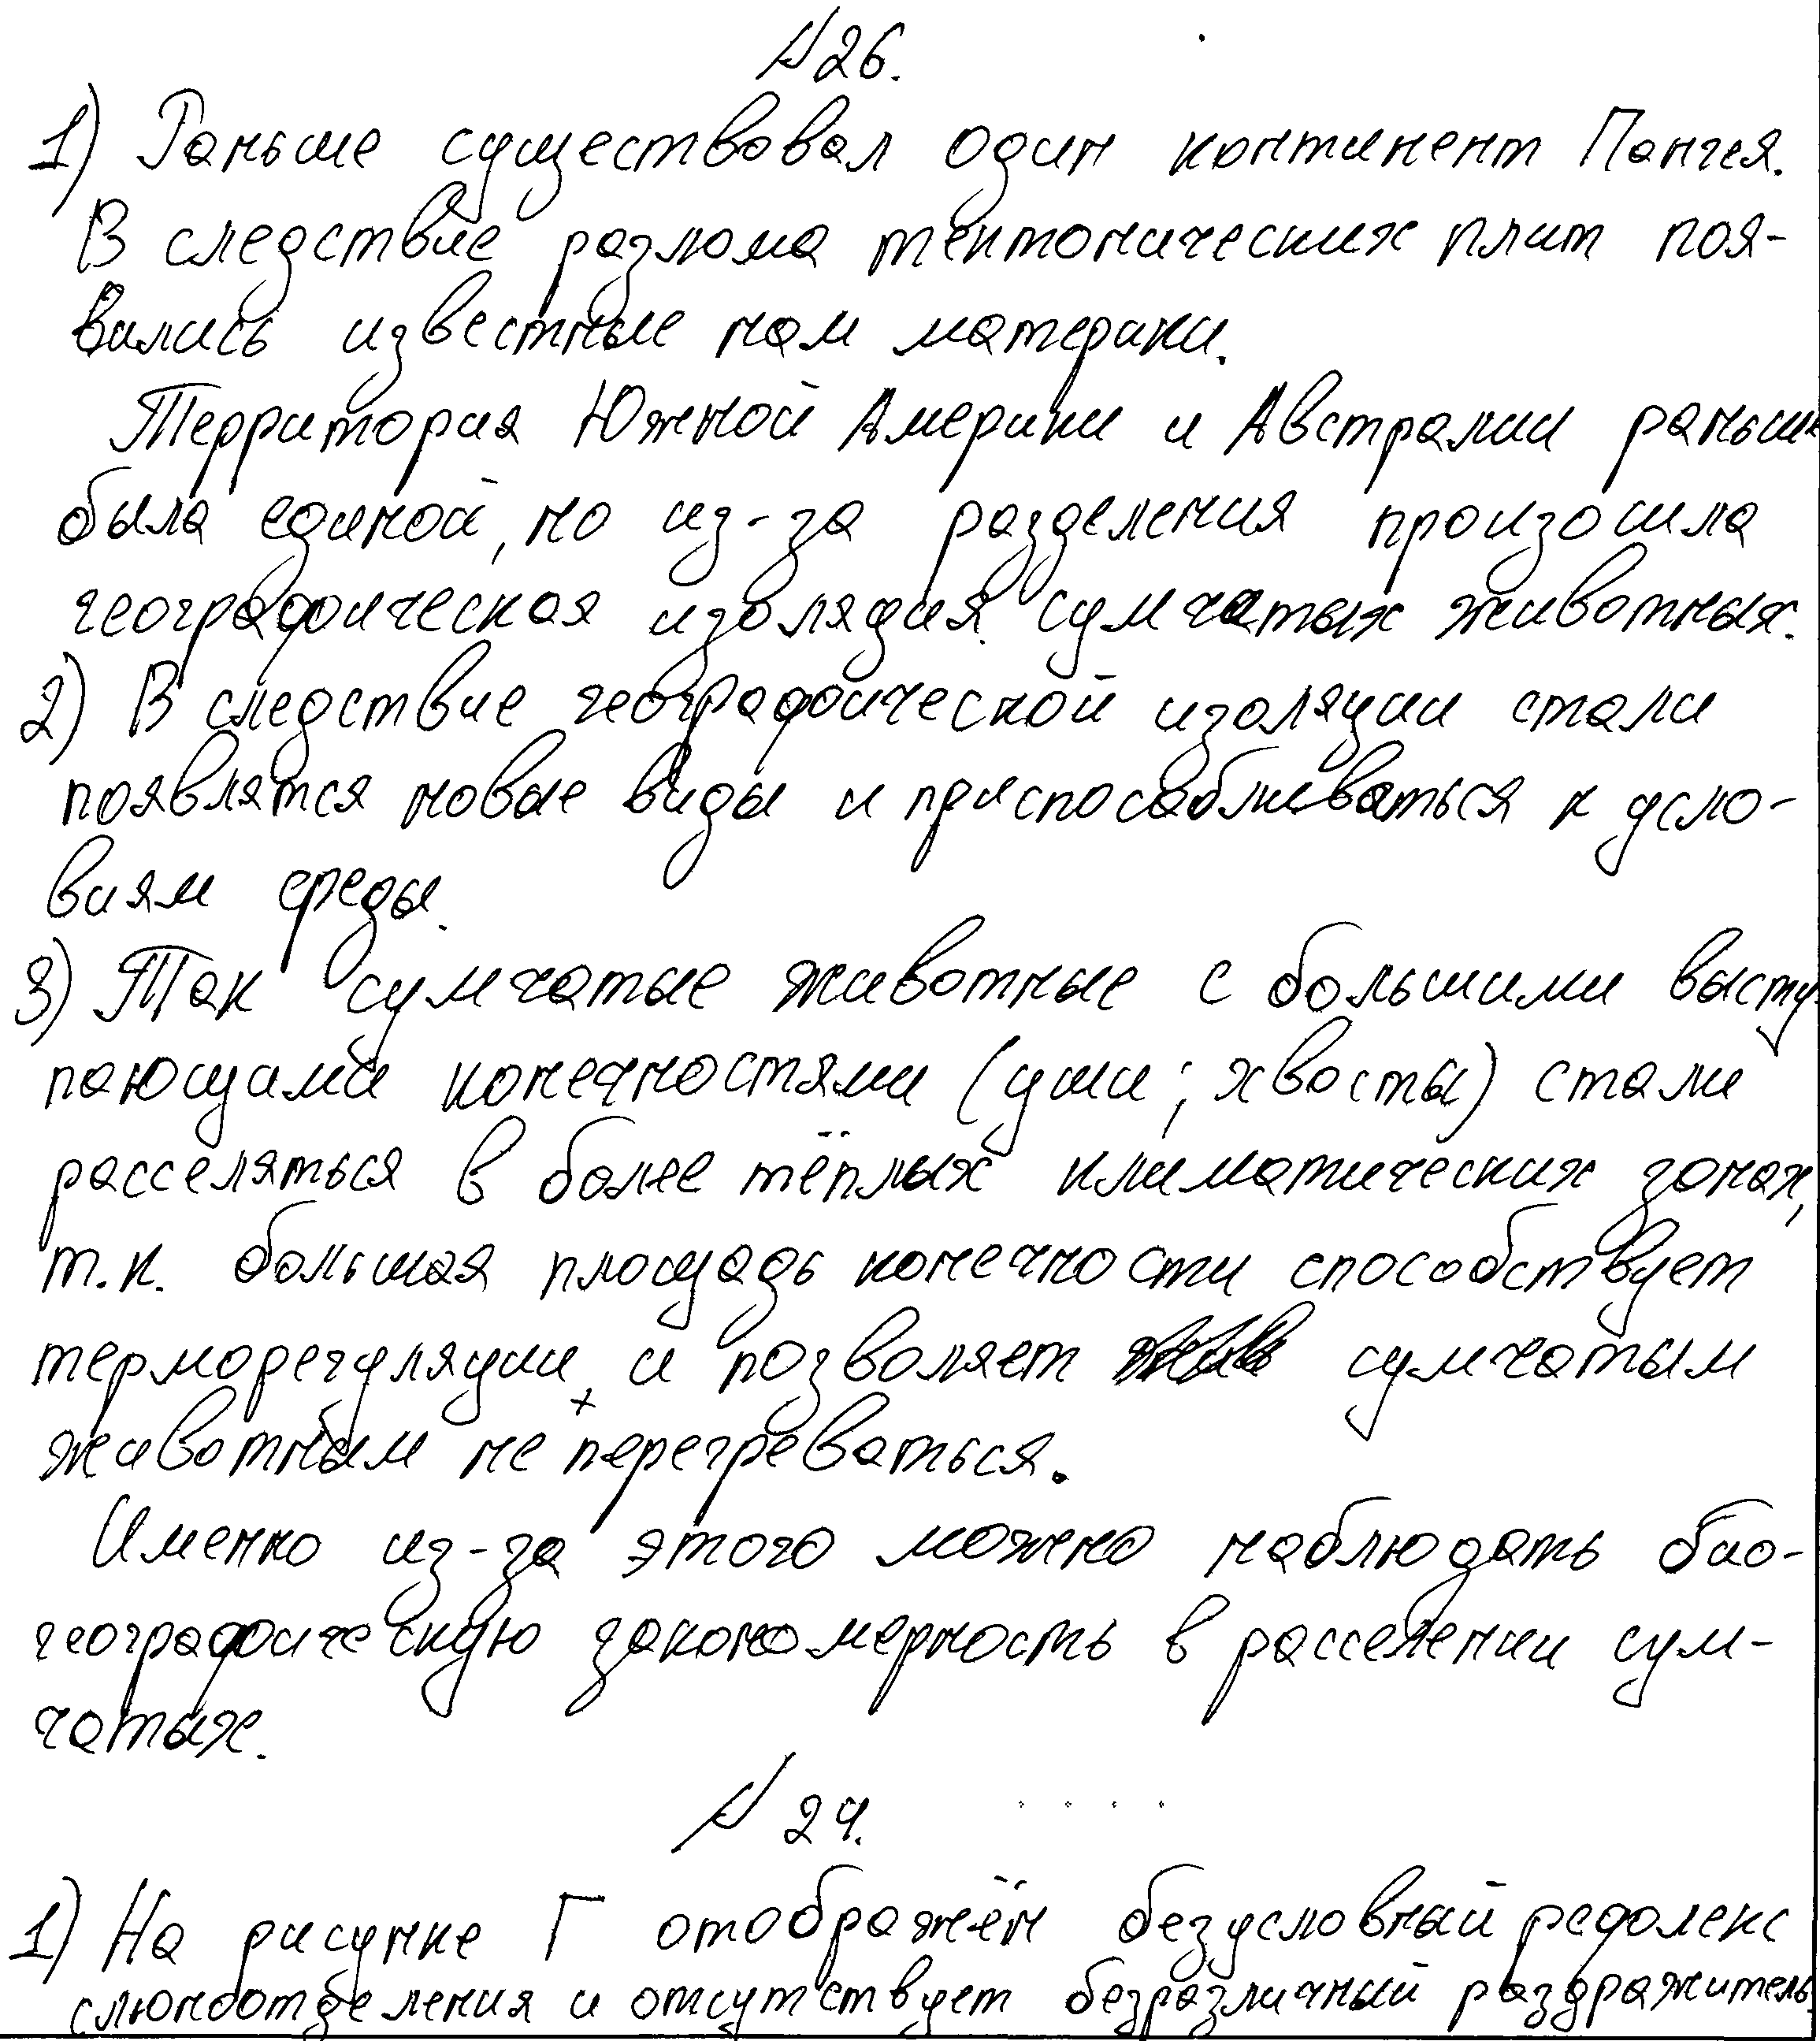 №26.
1) Раньше существовал один континент Пангея.
В следствие разлома тектонических плит поя-
вились известные нам материки.
Территория Южной Америки и Австралии раньше
была единой, но из-за разделения произошла
географическая изоляция сумчатых животных.
2) В следствие географической изоляции стали
появлятся новые виды и приспосабливаться к усло-
виям среды.
3) Так сумчатые животные с большими высту-
пающими конечностями (уши; хвосты) стали
расселяться в более тёплых климатических зонах,
т.к. большая площадь конечности способствует
терморегуляции и позволяет сумчатым
животным не перегреваться.
Именно из-за этого можно наблюдать био-
географическую закономерность в расселении сум-
чатых.
№ 24.
1) На рисунке Г отображён безусловный рефлекс
слюноотделения и отсутствует безразличный раздражитель.